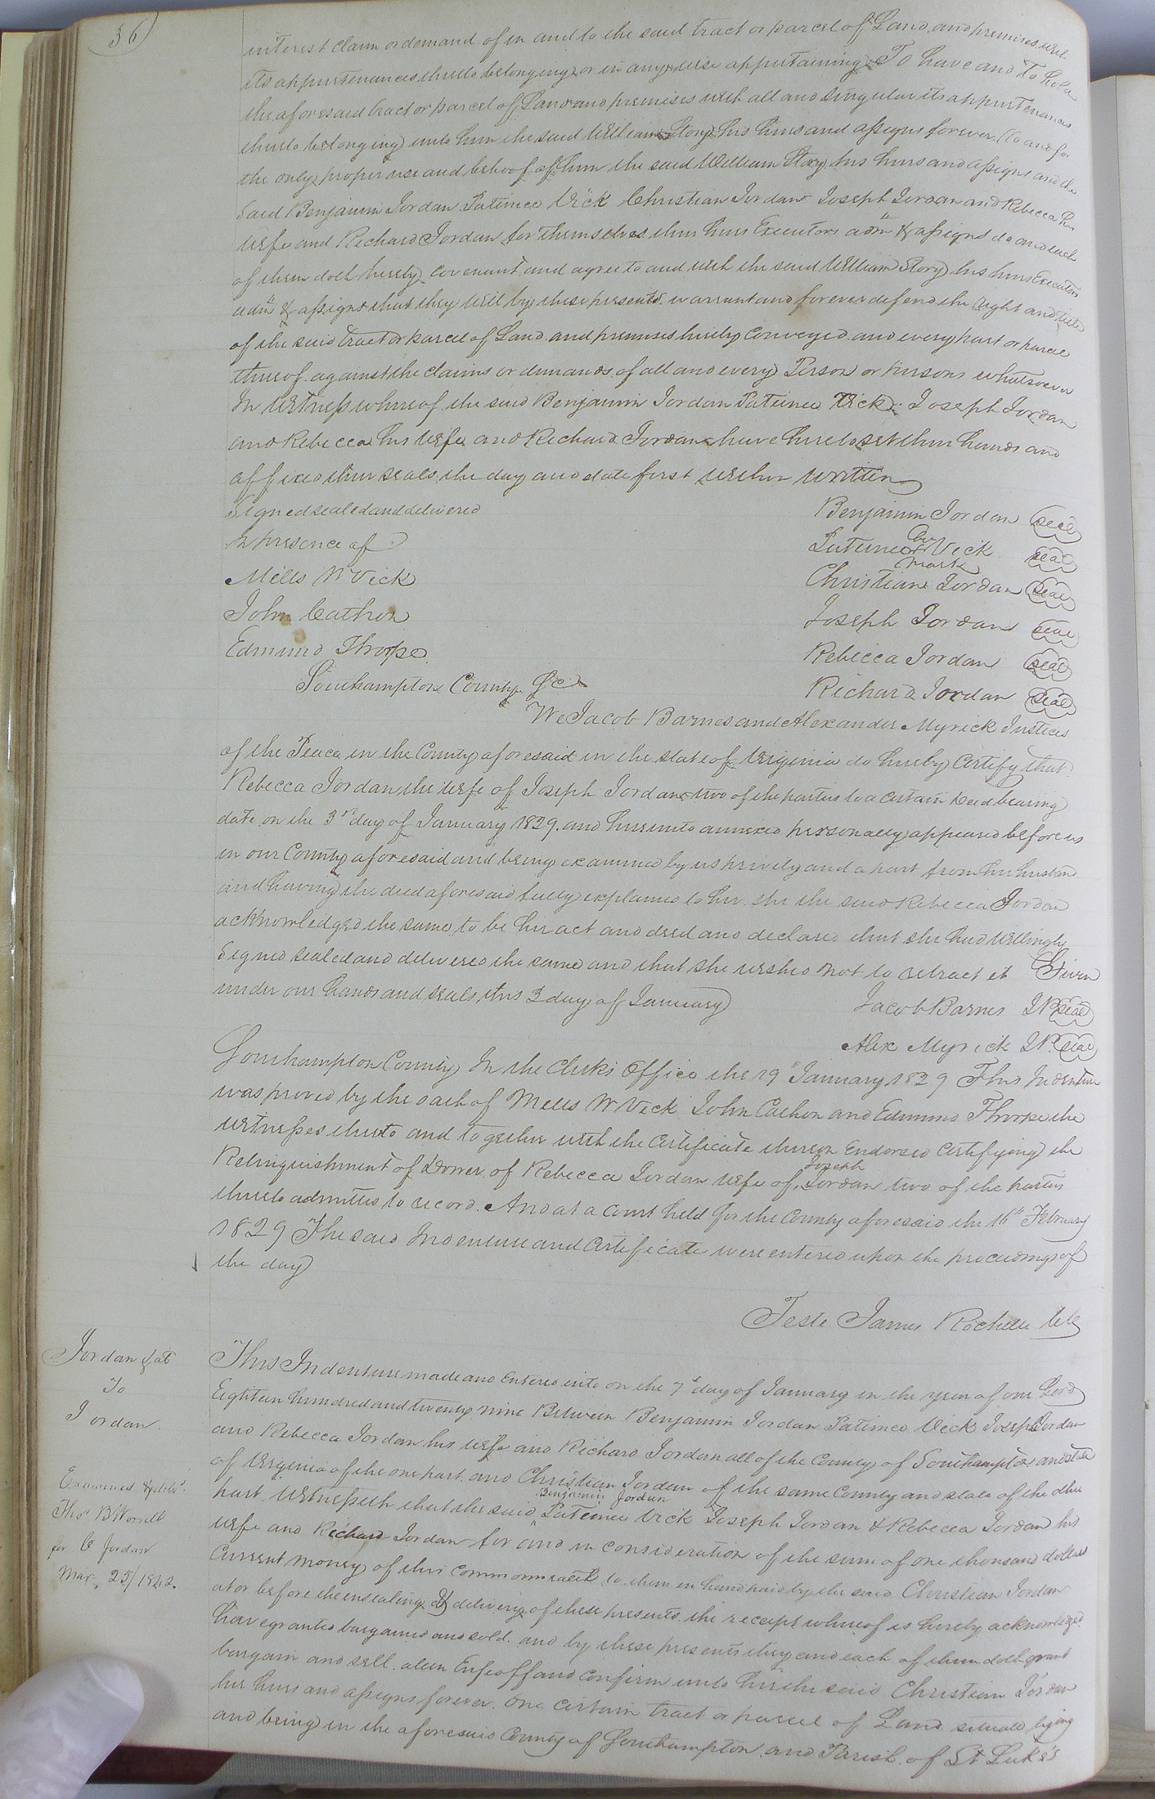 36
interest claim or demand of in and to the said tract or parcel of Land and premises with
its appurtenances thereto belonging or in any wise appertaining To have and To hold
the aforesaid tract or parcel of Land and premises with all and singular its appurtenances
thereto belonging unto him the said William Story his heirs and assigns forever to and for
the only proper use and behoof of him the said William Story his heirs and assigns and the
said Benjamin Jordan Patience Vick Christian Jordan Joseph Jordan and Rebecca his
wife and Richard Jordan for themselves their heirs Executors admrs & assigns do and each
of them doth hereby covenant and agree to and with the said William Story his heirs Executors
admrs & assigns that they will by these presents warrant and forever defend the right and title
of the said tract or parcel of Land and premises hereby conveyed and every part or parcel
thereof against the claims or demands of all and every Person or persons whatsoever
In Witness whereof the said Benjamin Jordan Patience Vick Joseph Jordan
and Rebecca his wife and Richard Jordan have hereto set their hands and
affixed their seals the day and date first within written
Signed sealed and delivered
in presence of
Mills W Vick
John Cathon
Edmund Thorpe
Benjamin Jordan seal
Patience her Vick seal
mark
Christian Jordan seal
Joseph Jordan seal
Rebecca Jordan seal
Richard Jordan seal
Southampton County Sc
We Jacob Barnes and Alexander Myrick Justices
of the Peace in the County aforesaid in the state of Virginia do hereby Certify that
Rebecca Jordan the wife of Joseph Jordan two of the parties to a certain deed bearing
date on the 3rd day of January 1829. and hereunto annexed personally appeared before us
in our County aforesaid and being examined by us privily and a part from her husband
and having the deed aforesaid fully explained to her she the said Rebecca Jordan
acknowledged the same to be her act and deed and declared that she had willingly
signed sealed and delivered the same and that she wished not to retract it Given
under our hands and seals this 3 day of January
Jacob Barnes J.P. seal
Alex Myrick J.P. seal
Southampton County In the Clerks Office the 19 January 1829 This Indenture
was proved by the oath of Mills W Vick John Cathon and Edmund Thorpe the
witnesses thereto and together with the Certificate thereon Endorsed Certifying the
Relinquishment of Dower of Rebecca Jordan wife of Joseph Jordan two of the parties
thereto admitted to record. And at a Court held for the County aforesaid the 16th February
1829 The said Indenture and Certificate were entered upon the proceedings of
the day
Teste James Rochelle
Jordan & al
To
Jordan
Examined & deld.
Thos B Worrell
for C Jordan
Mar. 25/1842.
This Indenture made and Entered into on the 7th day of January in the year of our Lord
Eighteen hundred and twenty nine Between Benjamin Jordan Patience Vick Joseph Jordan
and Rebecca Jordan his wife and Richard Jordan all of the County of Southampton and state
of Virginia of the one part and Christian Jordan of the same County and state of the other
part Witnesseth that the said Benjamin Jordan Patience Vick Joseph Jordan & Rebecca Jordan his
wife and Richard Jordan for and in consideration of the sum of one thousand dollars
Current money of this Commonwealth to them in hand paid by the said Christian Jordan
at or before the ensealing & delivery of these presents the receipt whereof is hereby acknowledged
have granted bargained and sold. and by these presents they and each of them doth grant
bargain and sell alien Enfeoff and confirm unto the said Christian Jordan
his heirs and assigns forever one certain tract or parcel of Land situate lying
and being in the aforesaid County of Southampton and Parish of St Luke's